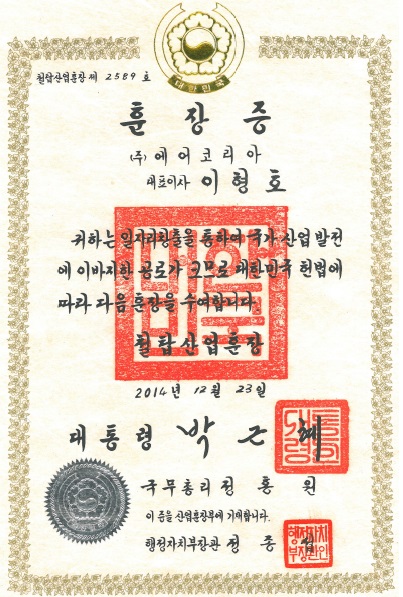 대한민국
철탑산업훈장 제 2589 호
훈장증
(주) 에어코리아
대표이사 이형호
귀하는 일자리창출을 통하여 국가 산업 발전
에 이바지한 공로가 크므로 대한민국 헌법에
따라 다음 훈장을 수여합니다.
철탑산업훈장
2014년 12월 23일
대통령 박근혜
국무총리 정홍원
이 증을 산업훈장부에 기재합니다.
행정자치부장관 정종섭
행정자치
부장관인